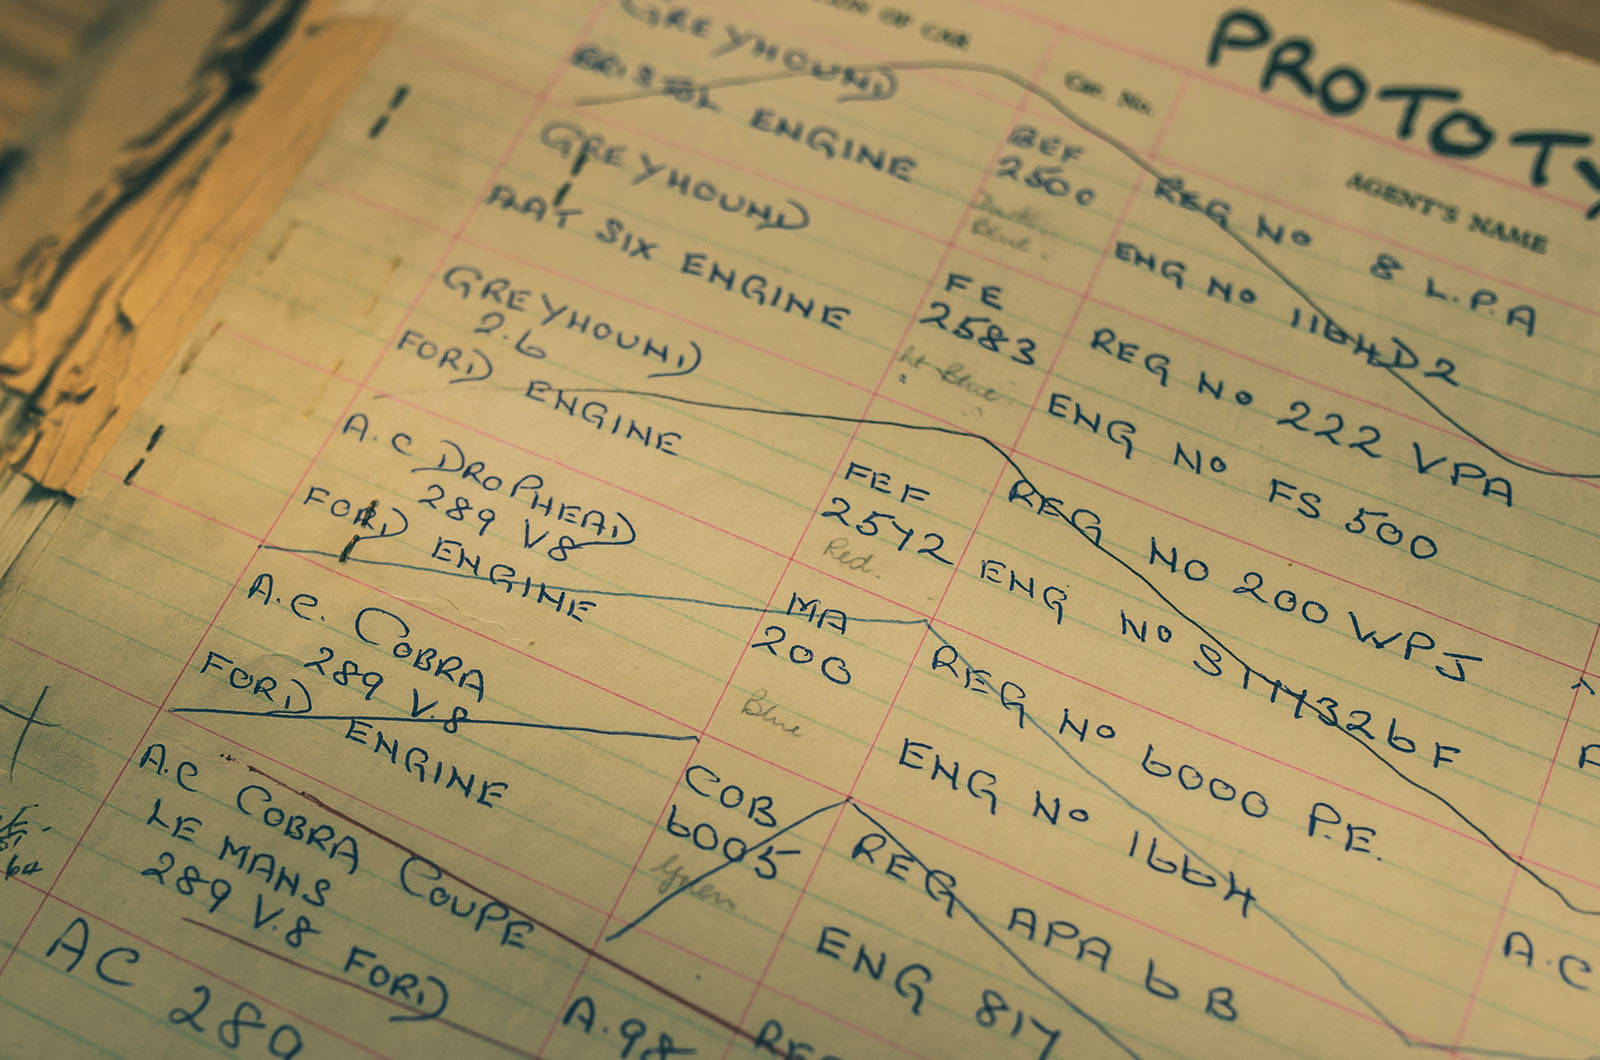 OF CAR
Car. No.
AGENT'S NAME
PROTOTY
GREYHOUND
BRISTOL ENGINE
BEF
2500
Dark
Blue.
REG No 8 L.P.A
ENG No 1164D2
GREYHOUND
FLAT SIX ENGINE
FE
2583
Lt Blue.
REG No 222 VPA
ENG No FS 500
GREYHOUND
2.6
FORD ENGINE
FEF
2542
Red.
REG NO 200 WPJ
ENG No
A.C DROPHEAD
289 V8
FORD ENGINE
MA
200
Blue
REG No 6000 P.E.
ENG No 1664
A.C. COBRA
289 V.8
FORD ENGINE
COB
6005
Green
REG APA 6 B
ENG 817
A.C COBRA COUPE
LE MANS
289 V.8 FORD
A.98
REG
A.C
AC 289
64